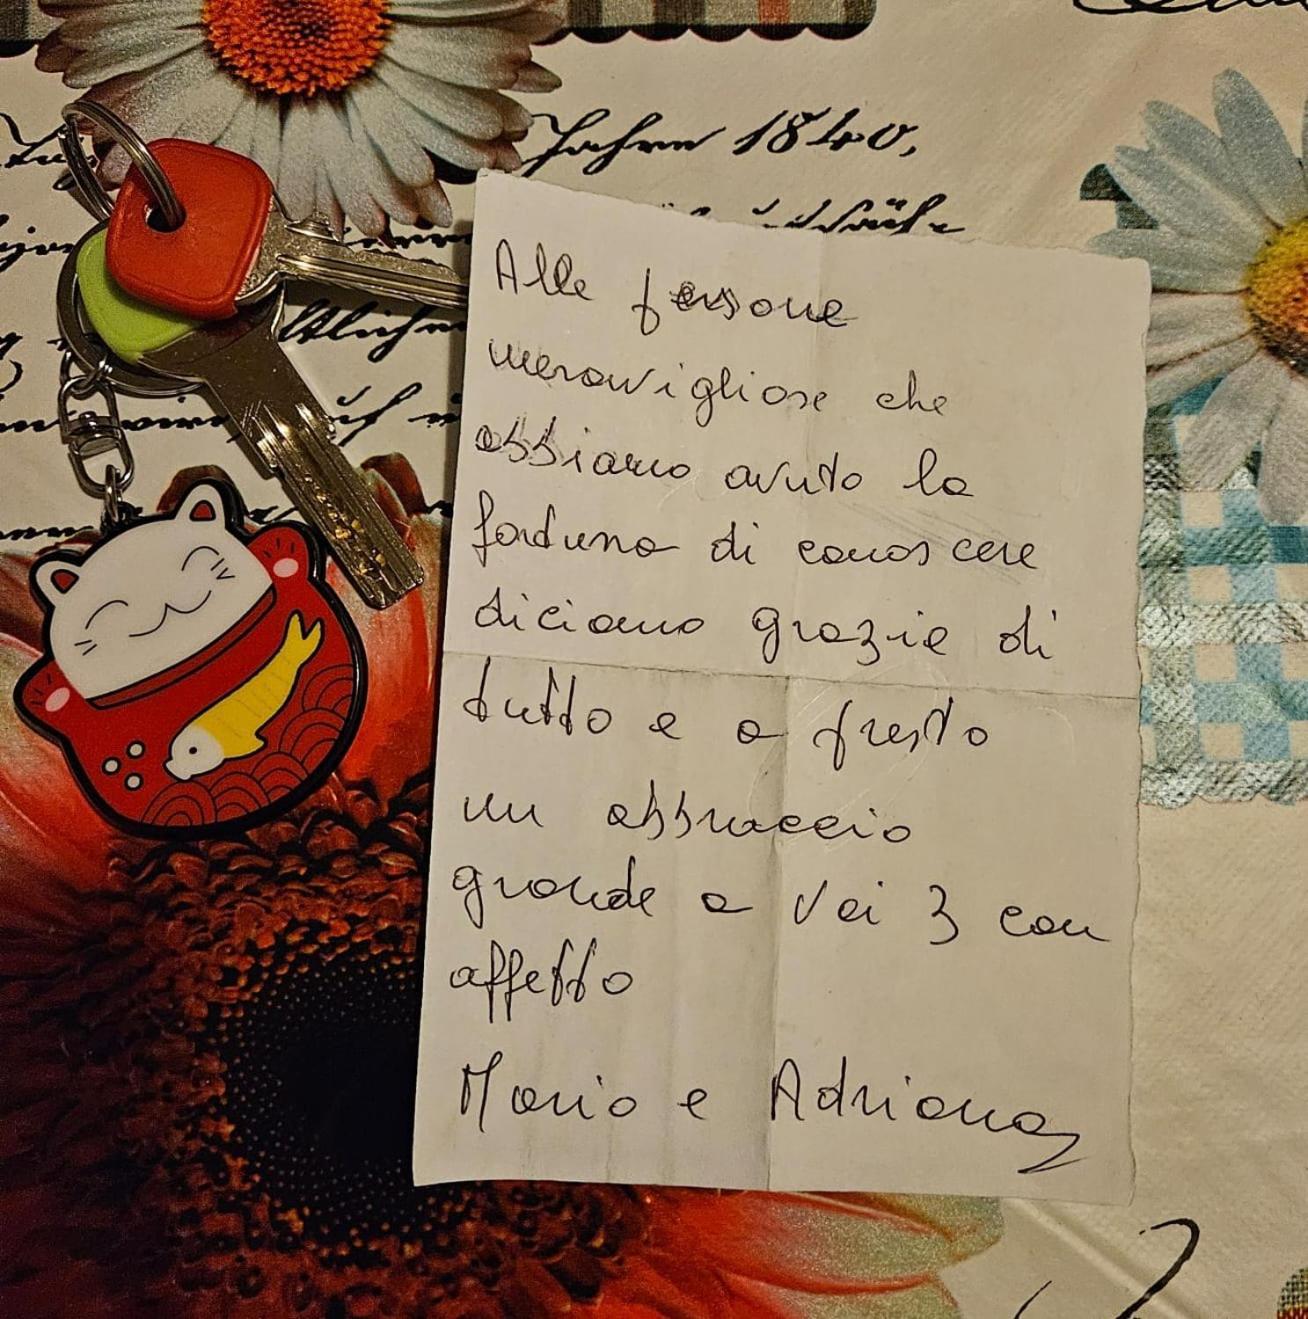 Jahre 1840,
Alle persone
meravigliose che
abbiamo avuto la
fortuna di conoscere
diciamo grazie di
tutto e a presto
un abbraccio
grande a voi 3 con
affetto
Mario e Adriana